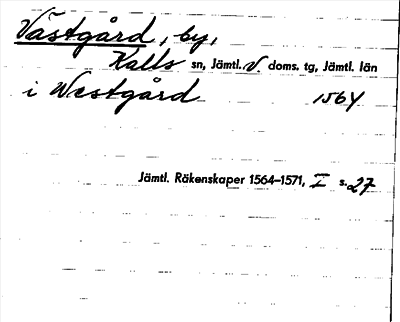 Västgård, by,
Kalls sn, Jämtl. V. doms. tg, Jämtl. län
i Westgård 1564
Jämtl. Räkenskaper 1564–1571, I s. 27